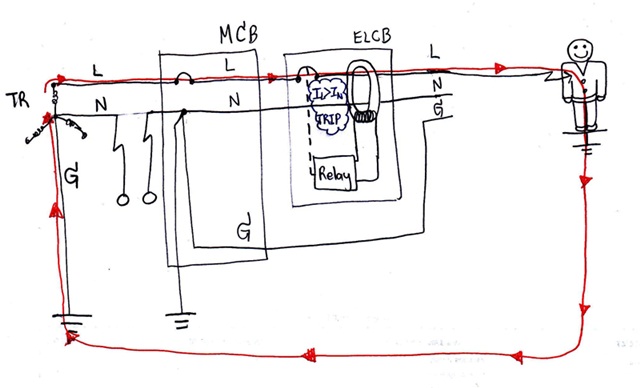 MCB
ELCB
L
L
L
TR
N
N
I₁>I_N
TRIP
N
G
G
Relay
G